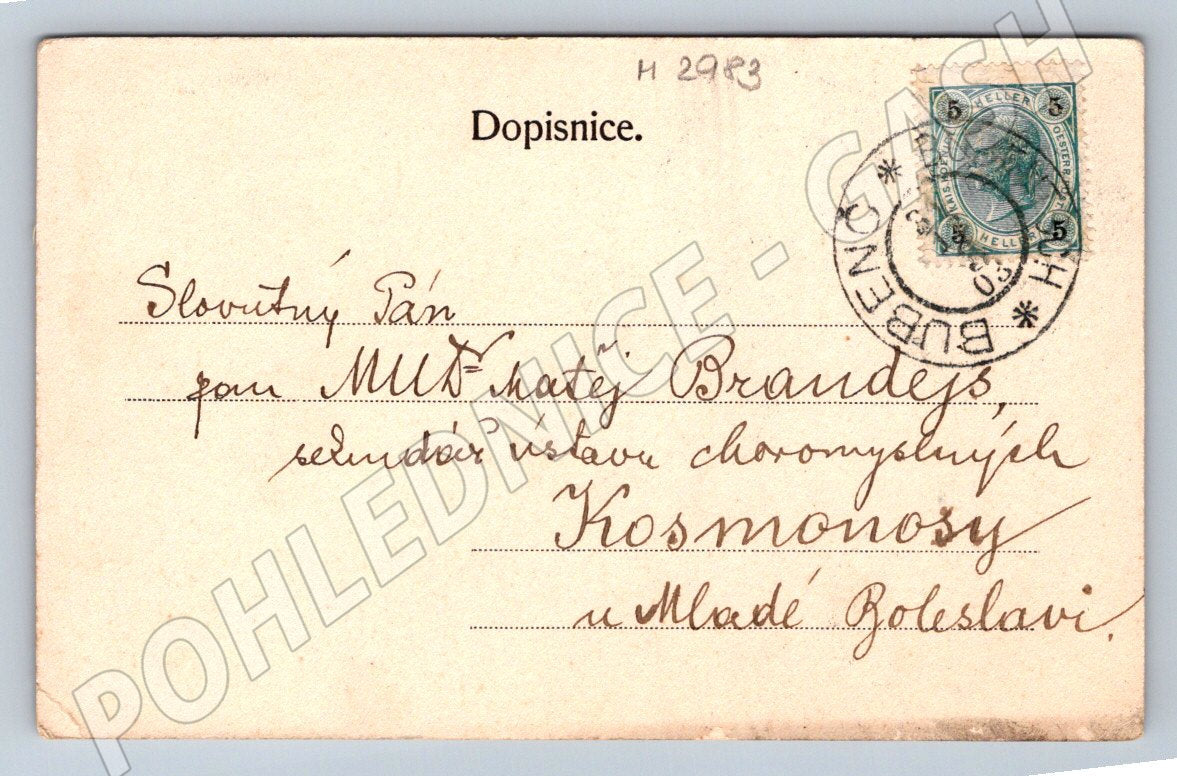 H 2983
Dopisnice.
5 HELLER 5
5 HELLER 5
BUBENČ * BUBENTSCH *
03
Slovutný Pán
pan MUDr Matěj Brandejs,
sekundář ústavu choromyslných
Kosmonosy
u Mladé Boleslavi.
POHLEDNICE - GACH